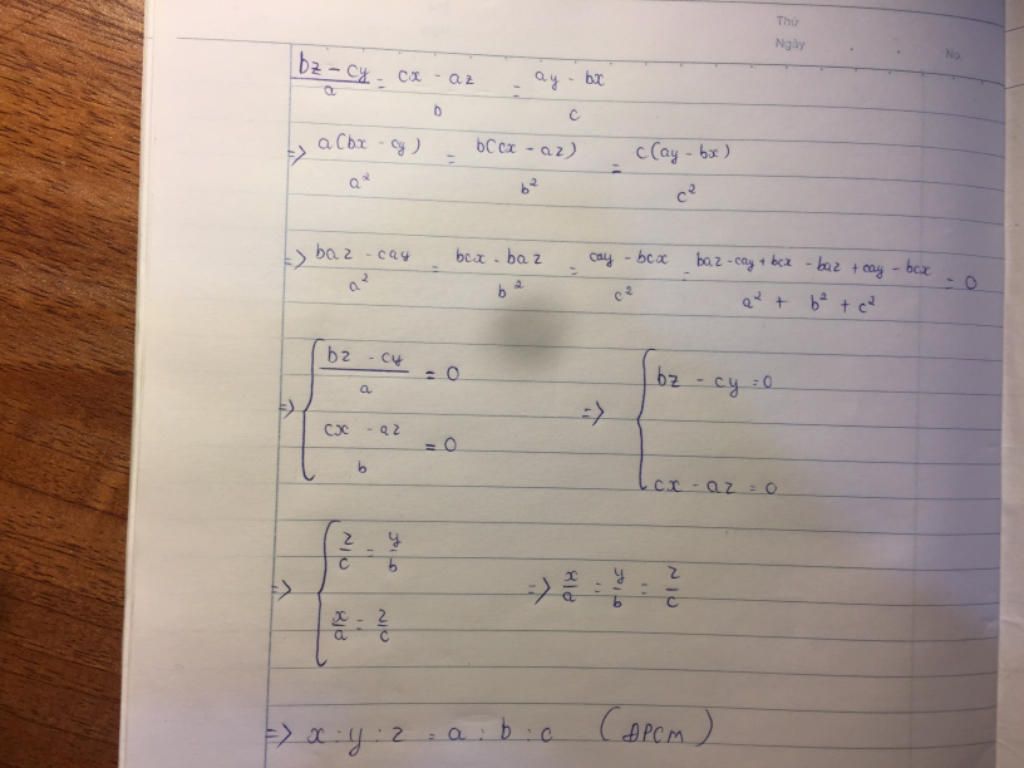 Thứ
Ngày . . No
bz - cy / a = cx - az / b = ay - bx / c
=> a(bx - cy) / a² = b(cx - az) / b² = c(ay - bx) / c²
=> baz - cay / a² = bcx - baz / b² = cay - bcx / c² = baz - cay + bcx - baz + cay - bcx / a² + b² + c² = 0
=> { bz - cy / a = 0 => { bz - cy = 0
cx - az / b = 0 cx - az = 0
=> { z/c = y/b => x/a = y/b = z/c
x/a = z/c
=> x : y : z = a : b : c (ĐPCM)